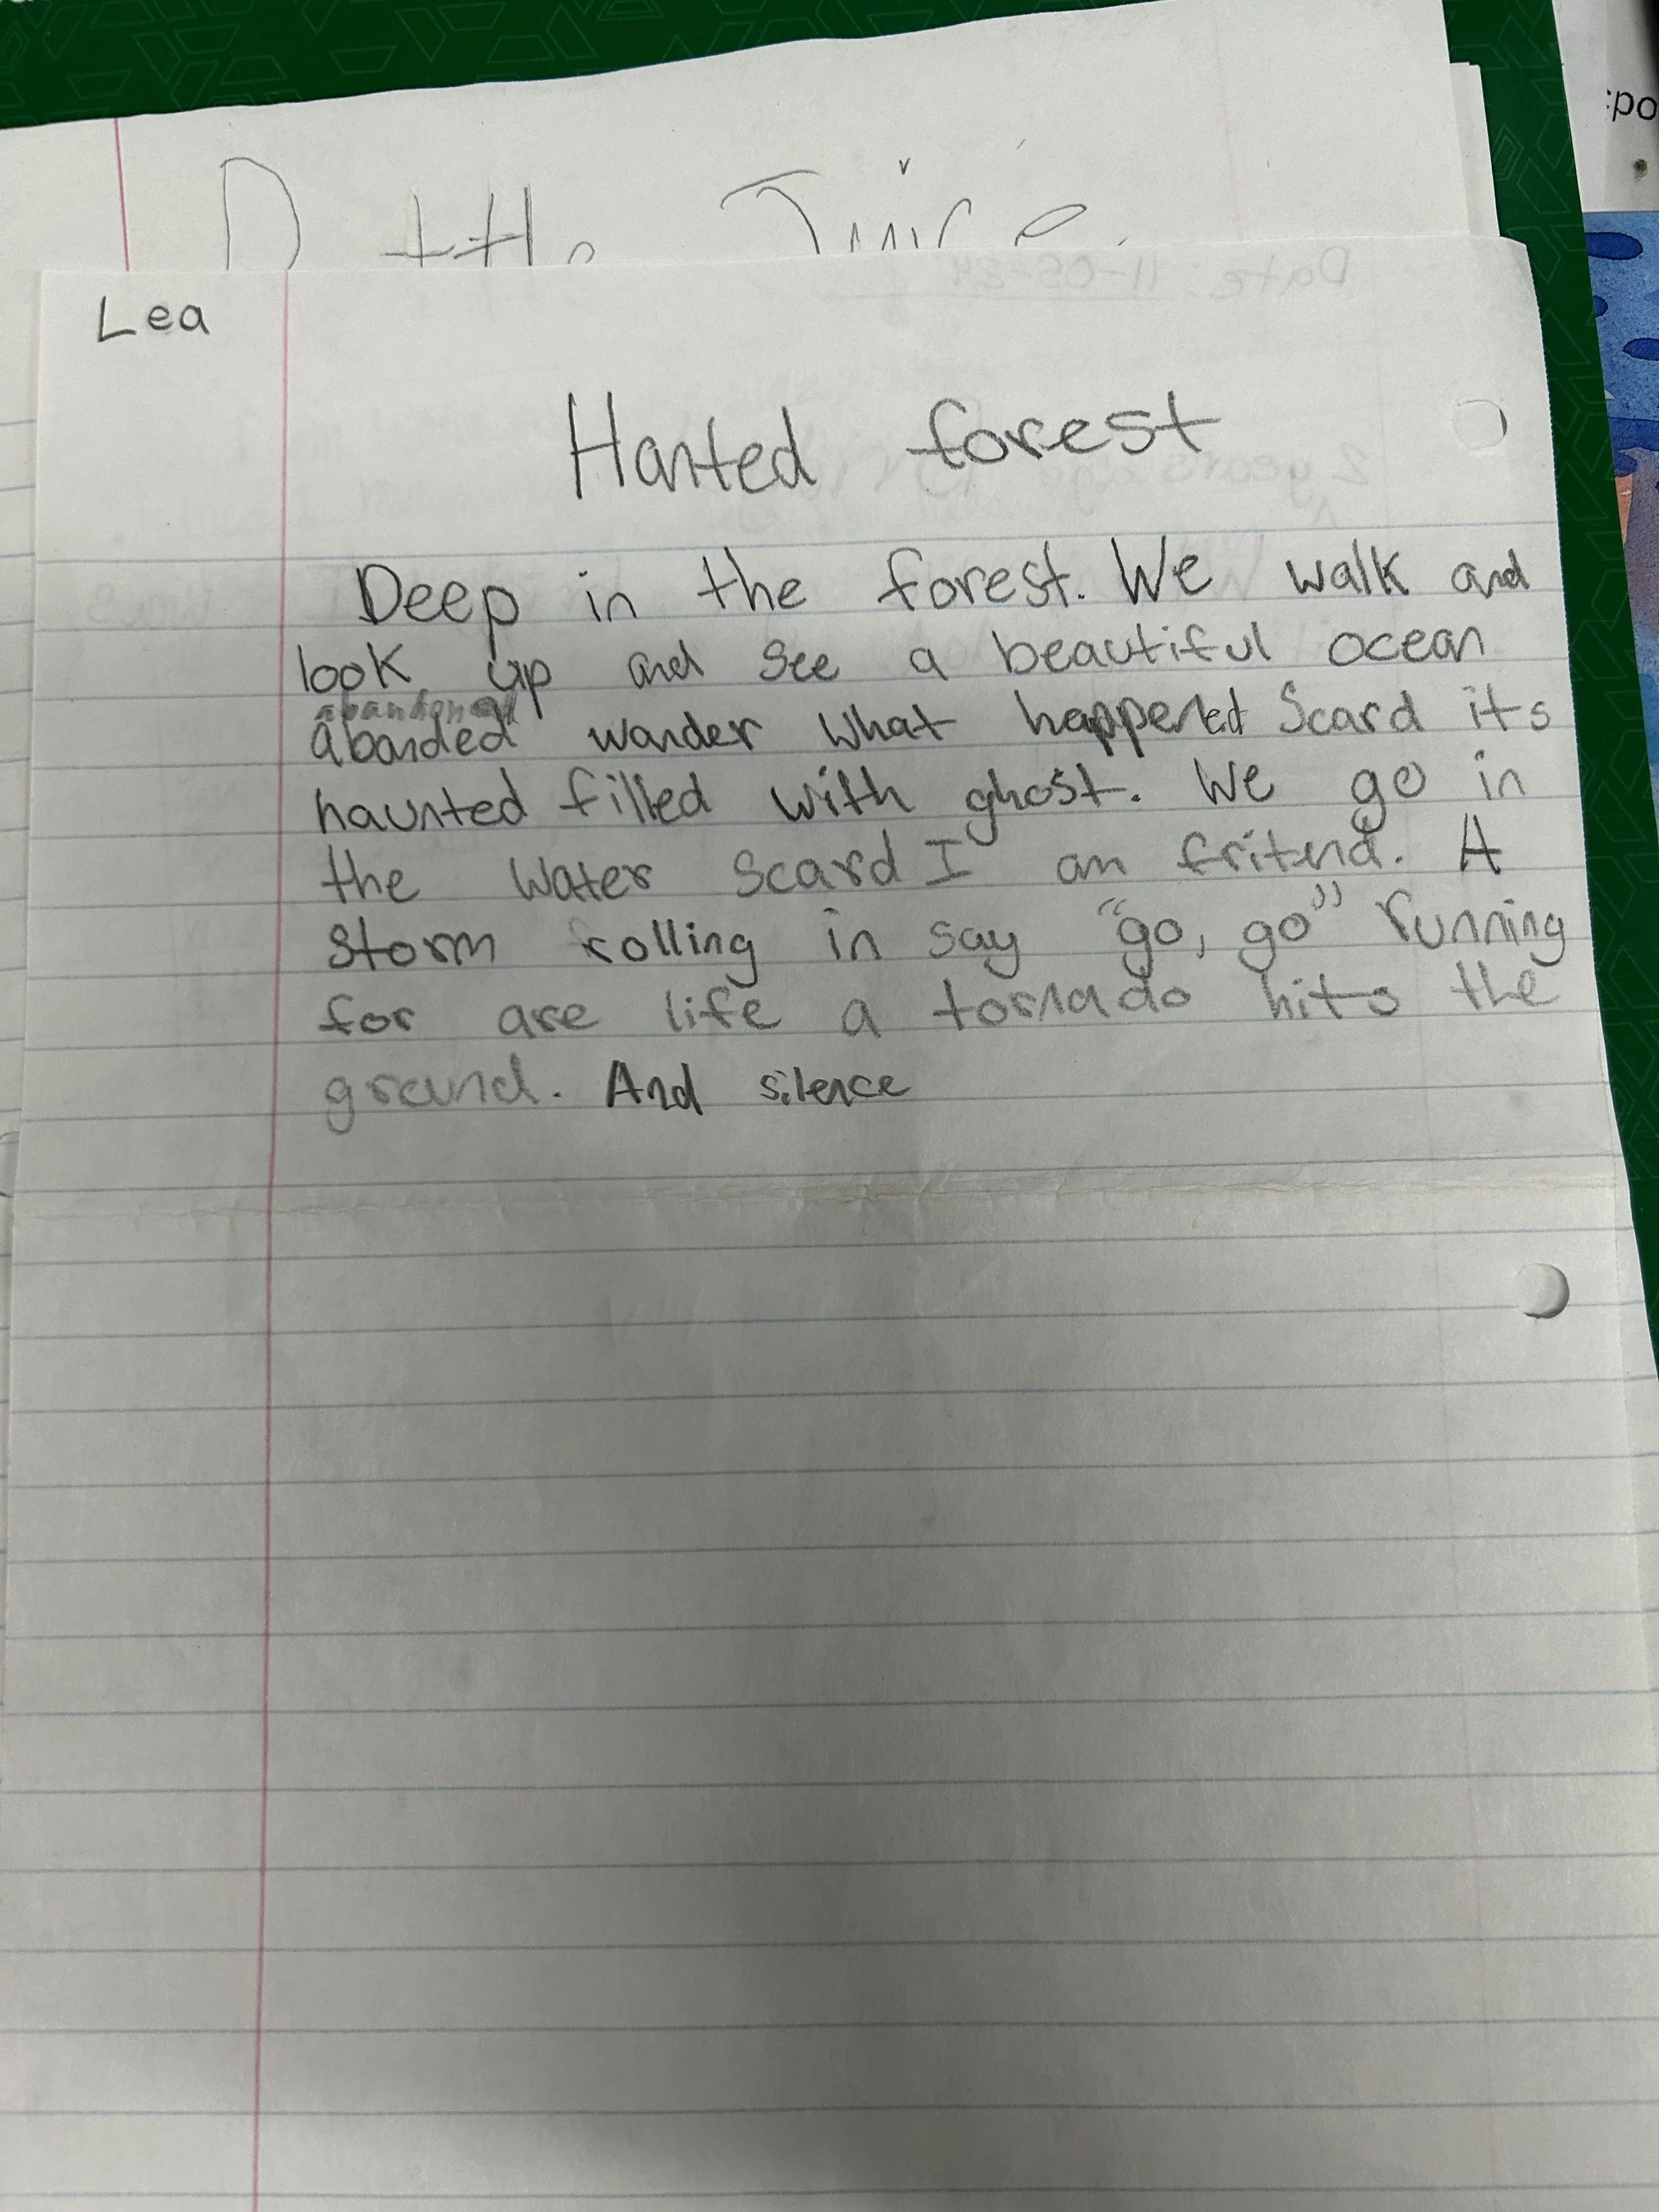 :po
Lea
Date: 11-05-24
Hanted forest
2 years ago
Deep in the forest. We walk and
look up and see a beautiful ocean
abandoned
abanded wander what happened Scard its
haunted filled with ghost. We go in
the water scard I am fritend. A
storm rolling in say "go, go" running
for are life a tornado hits the
ground. And silence